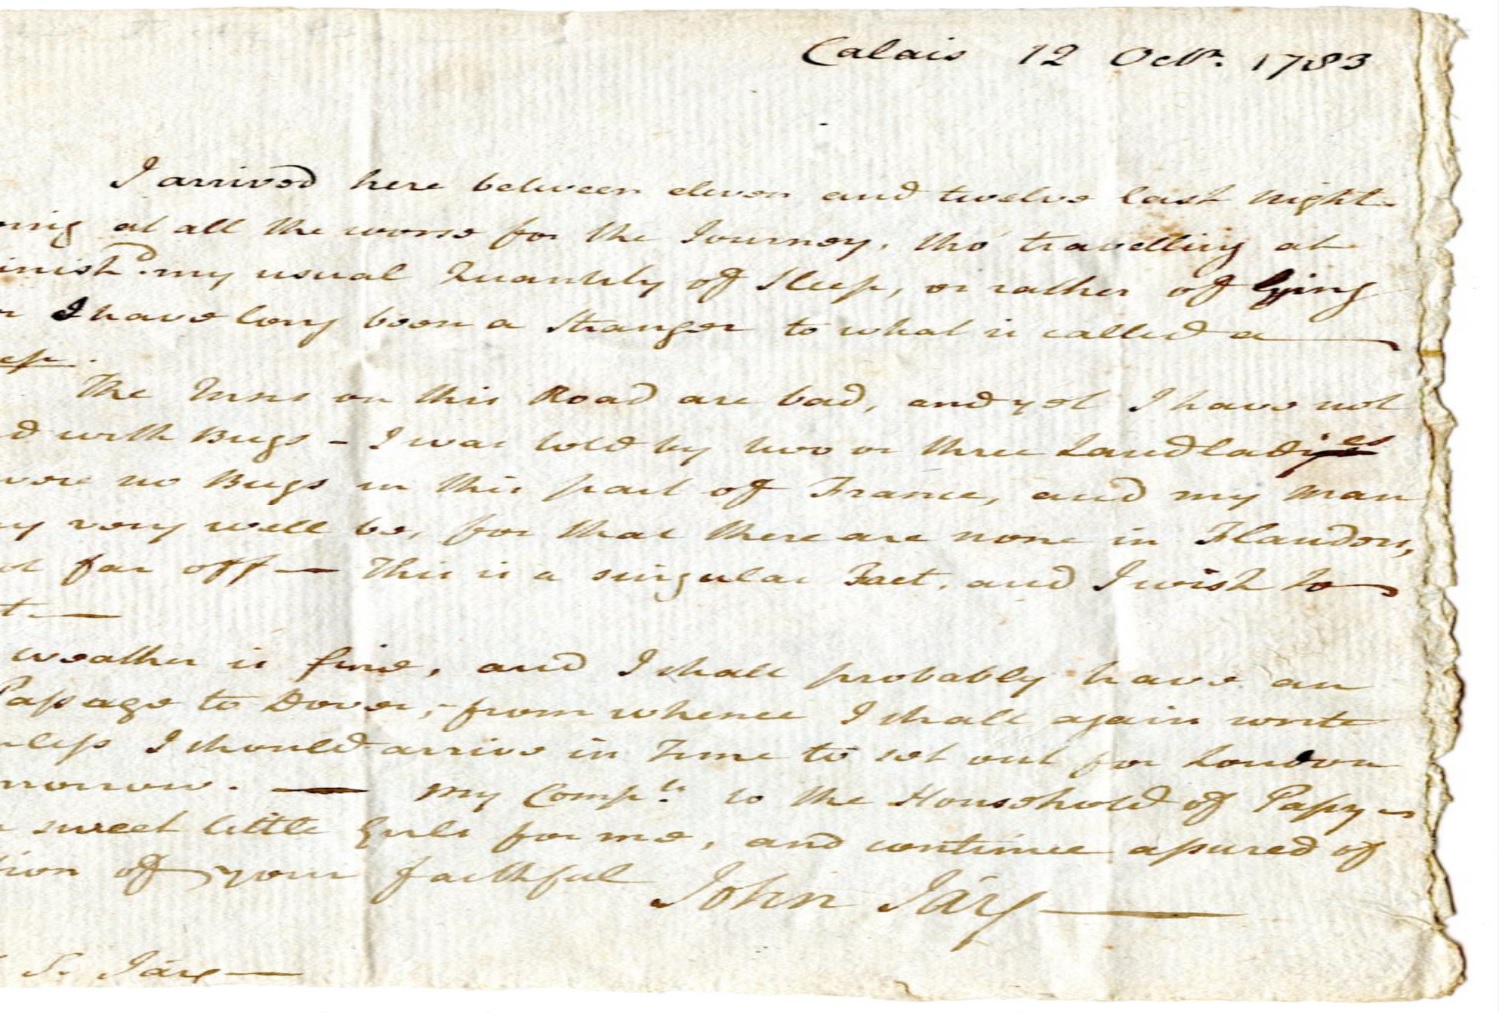 Calais 12 Octr. 1783
I arrived here between eleven and twelve last night
at all the worse for the Journey, tho' travelling at
my usual Quantity of Sleep, or rather of lying
I have long been a Stranger to what is called a
The Inns on this Road are bad, and yet I have not
with Bugs - I was told by two or three Landladies
no Bugs in this part of France, and my man
very well be, for that there are none in Flanders,
far off — This is a singular Fact, and I wish to
t. —
weather is fine, and I shall probably have an
Passage to Dover, - from whence I shall again write
I should arrive in Time to set out for London
morrow. — My Compts. to the Household of Passy -
sweet little Girls for me, and continue assured of
of your faithful John Jay —
S. Jay —